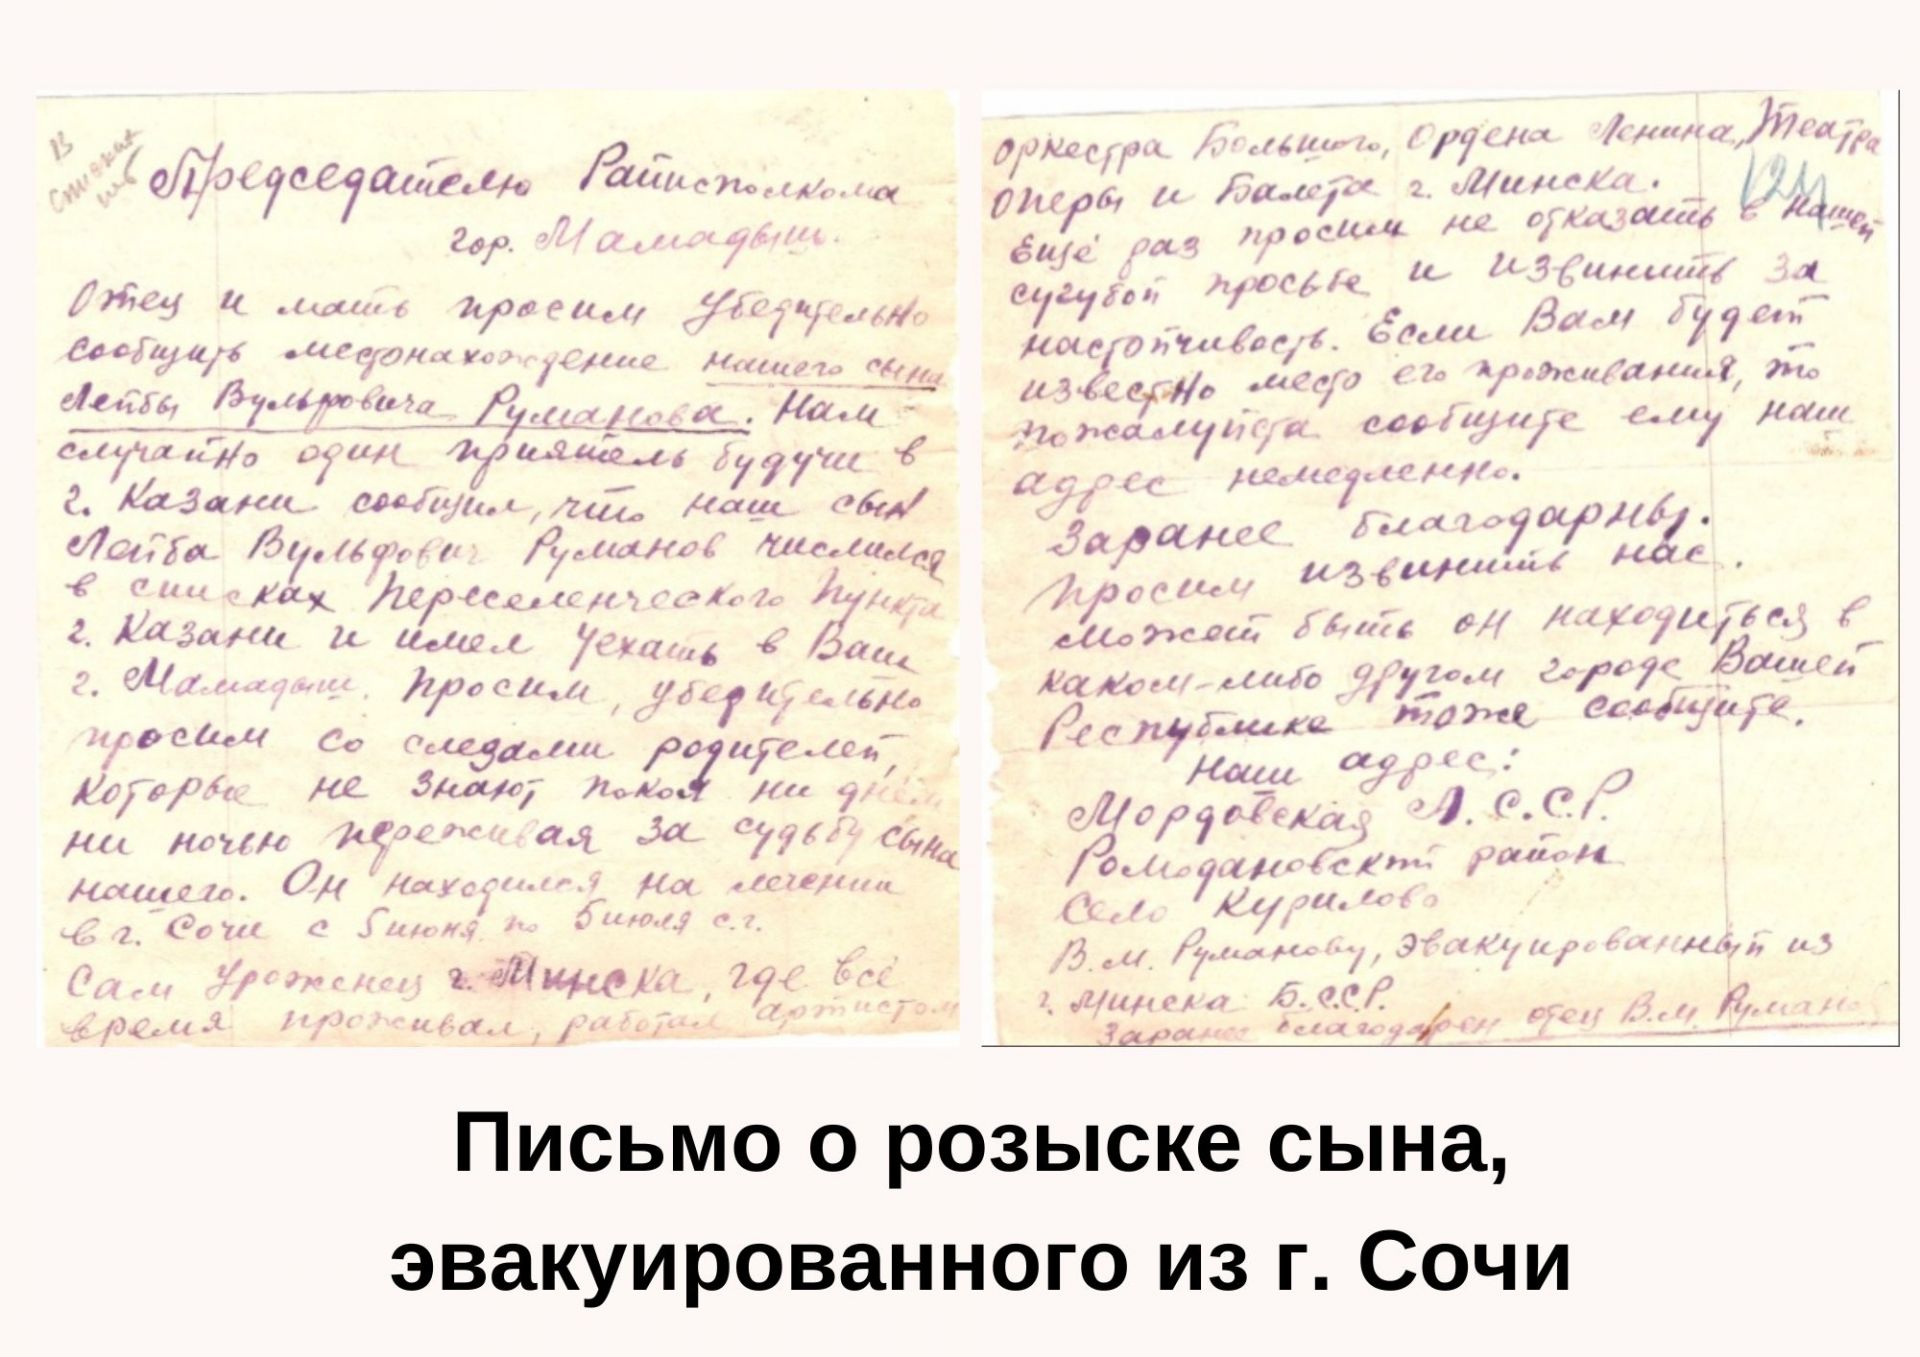 Председателю Райисполкома
гор. Мамадыш.
Отец и мать просим убедительно
сообщить местонахождение нашего сына
Лейбы Вульфовича Руманова. Нам
случайно один приятель будучи в
г. Казани сообщил, что наш сын
Лейба Вульфович Руманов числился
в списках Переселенческого Пункта
г. Казани и имел уехать в Ваш
г. Мамадыш. Просим, убедительно
просим со слезами родителей,
которые не знают покоя ни днём
ни ночью переживая за судьбу сына
нашего. Он находился на лечении
в г. Сочи с 5 июня по 5 июля с.г.
Сам уроженец г. Минска, где всё
время проживал, работал артистом
оркестра Большого, Ордена Ленина, Театра
Оперы и Балета г. Минска.
124
Ещё раз просим не отказать в нашей
сугубой просьбе и извинить за
настойчивость. Если Вам будет
известно место его проживания, то
пожалуйста сообщите ему наш
адрес немедленно.
Заранее благодарны.
Просим извинить нас.
Может быть он находиться в
каком-либо другом городе Вашей
Республике тоже сообщите.
Наш адрес:
Мордовская А.С.С.Р.
Ромодановский район
Село Курилово
В.М. Руманову, эвакуированный из
г. Минска Б.С.С.Р.
Заранее благодарен отец В.М. Руманов
Письмо о розыске сына,
эвакуированного из г. Сочи